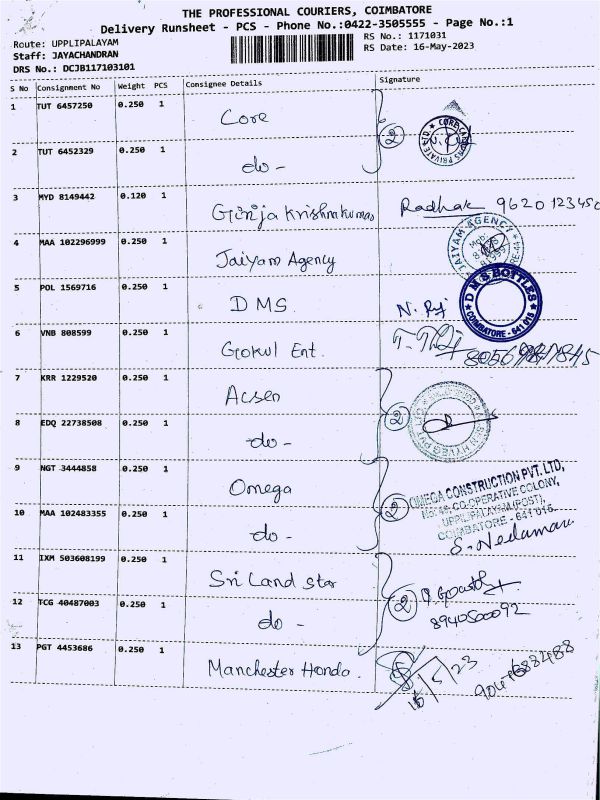 THE PROFESSIONAL COURIERS, COIMBATORE
Delivery Runsheet - PCS - Phone No.:0422-3505555 - Page No.:1
Route: UPPLIPALAYAM
RS No.: 1171031
Staff: JAYACHANDRAN
RS Date: 16-May-2023
DRS No.: DCJB117103101
S No Consignment No Weight PCS Consignee Details Signature
1 TUT 6457250 0.250 1 Core
2 TUT 6452329 0.250 1 do -
2
CORE PRIVATE LTD.
3 MYD 8149442 0.120 1 Girija Krishnakumar Radhak 9620123450
4 MAA 102296999 0.250 1 Jaiyam Agency
JAIYAM AGENCY
5 POL 1569716 0.250 1 DMS N. Raj
DMS BOTTLES
COIMBATORE - 641 015
6 VNB 808599 0.250 1 Gokul Ent.
7 KRR 1229520 0.250 1 Acsen
8 EDQ 22738508 0.250 1 do -
2
9 NGT 3444858 0.250 1 Omega
10 MAA 102483355 0.250 1 do -
2
OMEGA CONSTRUCTION PVT. LTD,
CO-OPERATIVE COLONY,
UPPLIPALAYAM (POST),
COIMBATORE - 641 015.
S. Nedumaran
11 IXM 503608199 0.250 1 Sri Land Star
12 TCG 40487003 0.250 1 do -
2
8940500092
13 PGT 4453686 0.250 1 Manchester Honda.
16/5/23